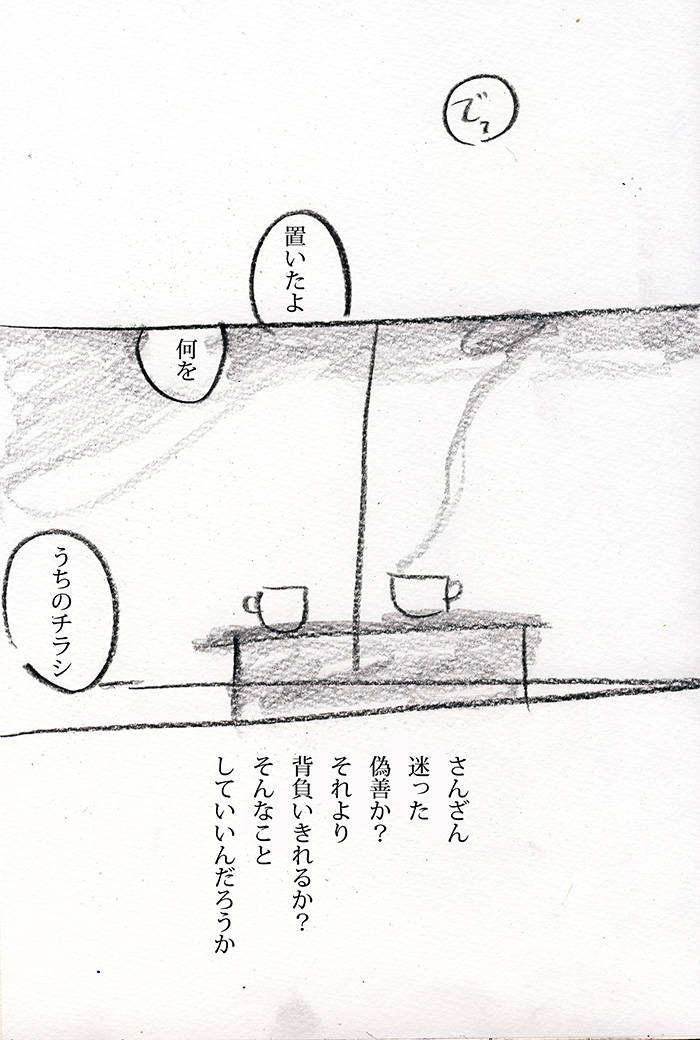 でっ
置いたよ
何を
うちのチラシ
さんざん
迷った
偽善か？
それより
背負いきれるか？
そんなこと
していいんだろうか